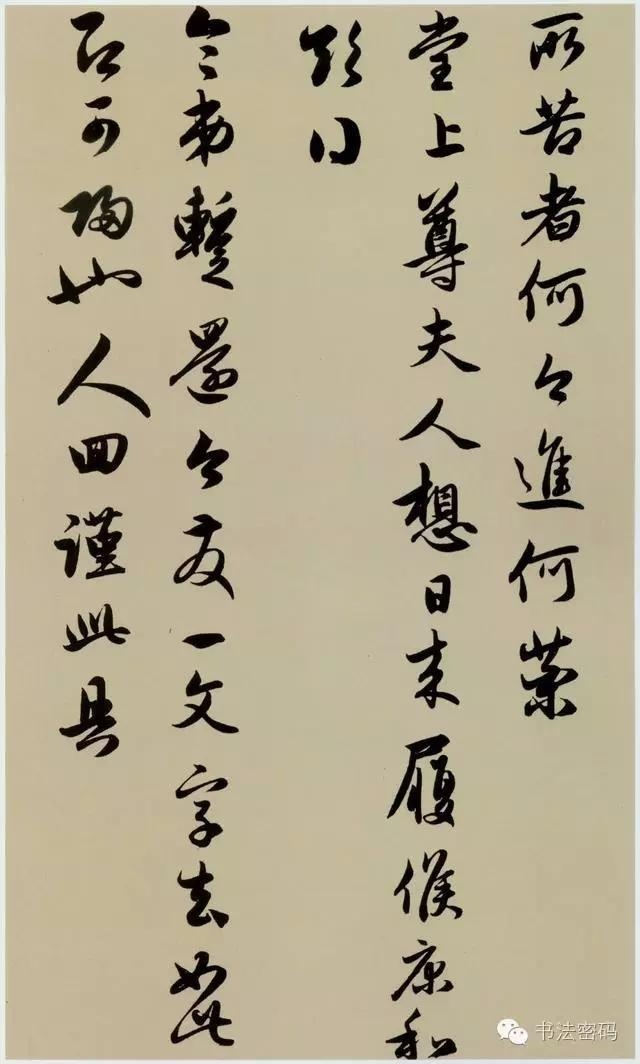 所苦者何々進何藥
堂上尊夫人想日来履候康和
令弟暫還今友一文字去如此
可
人回謹此具
书法密码